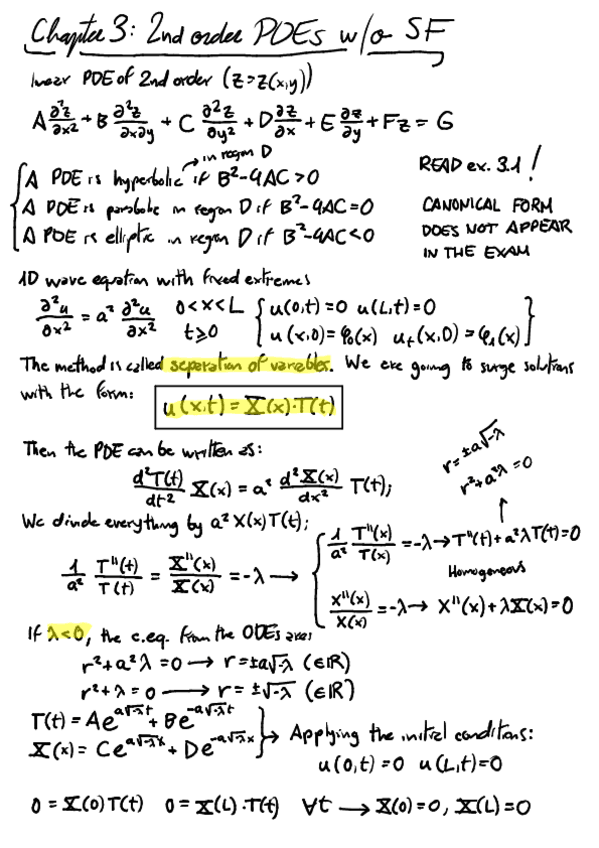 Chapter 3: 2nd order PDEs w/o SF
linear PDE of 2nd order (z=z(x,y))
A ∂²z/∂x² + B ∂²z/∂x∂y + C ∂²z/∂y² + D ∂z/∂x + E ∂z/∂y + Fz = G
in region D
A PDE is hyperbolic if B²-4AC>0
A PDE is parabolic in region D if B²-4AC=0
A PDE is elliptic in region D if B²-4AC<0
READ ex. 3.1!
CANONICAL FORM
DOES NOT APPEAR
IN THE EXAM
1D wave equation with fixed extremes
∂²u/∂x² = a² ∂²u/∂x² 0<x<L t≥0 { u(0,t)=0 u(L,t)=0
u(x,0)=φ₀(x) u_t(x,0)=φ₁(x) }
The method is called separation of variables. We are going to surge solutions
with the form: u(x,t) = X(x)·T(t)
Then the PDE can be written as:
d²T(t)/dt² X(x) = a² d²X(x)/dx² T(t);
r=±a√-λ
r²+a²λ=0
We divide everything by a²X(x)T(t);
1/a² T''(t)/T(t) = X''(x)/X(x) = -λ →
1/a² T''(x)/T(x) = -λ → T''(t)+a²λT(t)=0
Homogeneous
X''(x)/X(x) = -λ → X''(x)+λX(x)=0
If λ<0, the c.eq. from the ODEs are:
r²+a²λ=0 → r=±a√-λ (∈ℝ)
r²+λ=0 → r=±√-λ (∈ℝ)
T(t) = Ae^{a√-λt} + Be^{-a√-λt}
X(x) = Ce^{a√-λx} + De^{-a√-λx} } → Applying the initial conditions:
u(0,t)=0 u(L,t)=0
0=X(0)T(t) 0=X(L)·T(t) ∀t → X(0)=0, X(L)=0